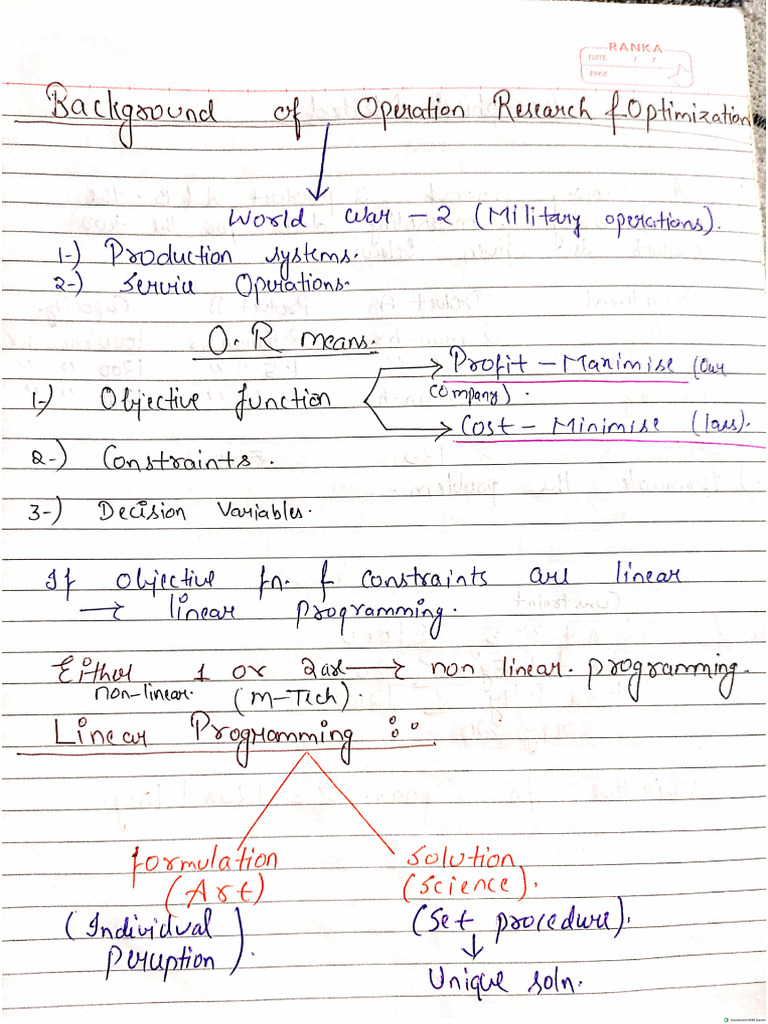 RANKA
DATE / /
PAGE
Background of Operation Research & Optimization
World War - 2 (Military operations).
1-) Production systems.
2-) Service Operations.
O.R means.
Profit - Maximise (Our
1-) Objective function
company).
Cost - Minimise (loss).
2-) Constraints.
3-) Decision Variables.
If objective fn. & constraints are linear
→ linear programming.
Either 1 or 2 are → non linear. programming.
non-linear. (M-Tech).
Linear Programming
formulation
solution
(Art)
(Science).
(Individual
(Set procedure).
Perception).
Unique soln.